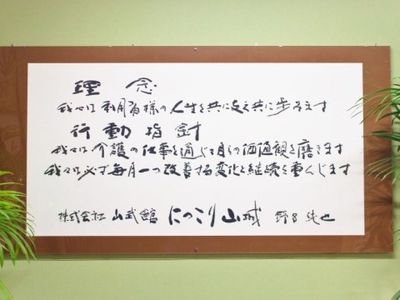 理 念
我々は利用者様の人生を共に支え共に歩みます
行 動 指 針
我々は介護の仕事を通じて自らの価値観を磨きます
我々は必ず毎月一つ改善する変化と継続を重んじます
株式会社 山武館 にっこり山城